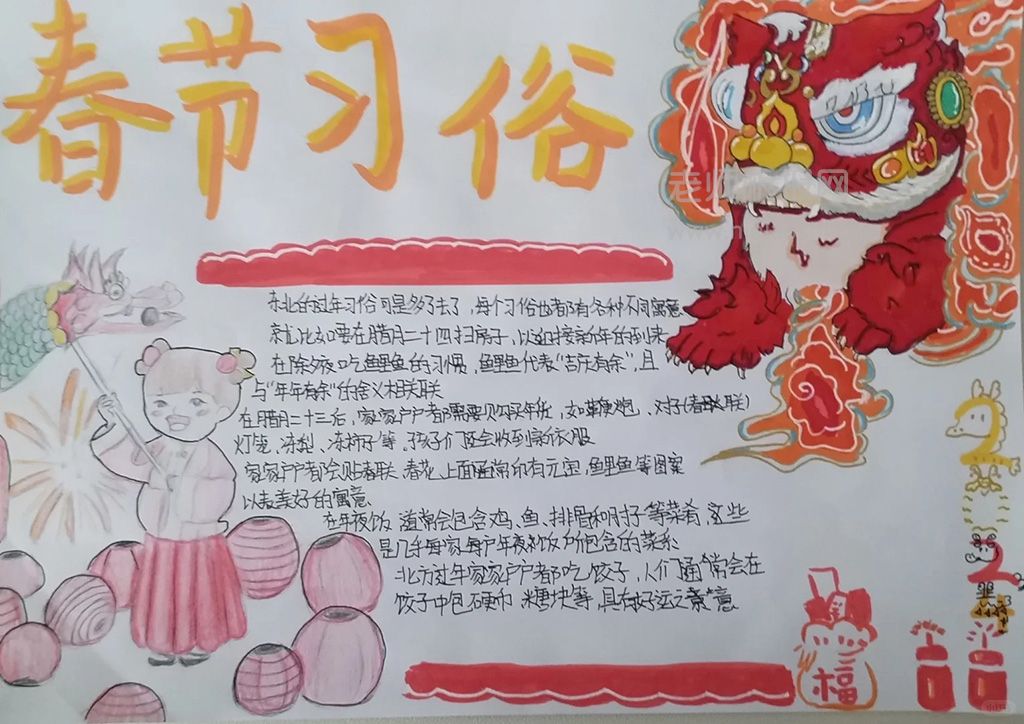 春节习俗
东北的过年习俗可是多了去了，每个习俗也都有各种不同寓意
就比如要在腊月二十四扫房子，以迎接新年的到来
在除夕夜吃鲤鱼的习惯，鲤鱼代表“吉庆有余”，且
与“年年有余”的含义相关联
在腊月二十三后，家家户户都需要购买年货，如鞭炮、对子(春联)
灯笼、冻梨、冻柿子等。孩子们还会收到新衣服
家家户户都会贴春联、春花，上面通常印有元宝、鲤鱼等图案
以表美好的寓意
在年夜饭，通常会包含鸡、鱼、排骨和肘子等菜肴，这些
是几乎每家每户年夜饭所包含的菜系
北方过年家家户户都吃饺子，人们通常会在
饺子中包硬币、糖块等，具有好运之意
福